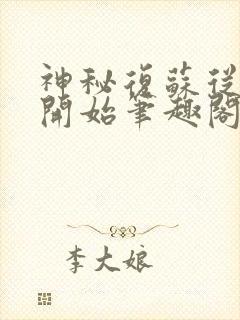 神秘復蘇從
開始筆趣閣
李大娘